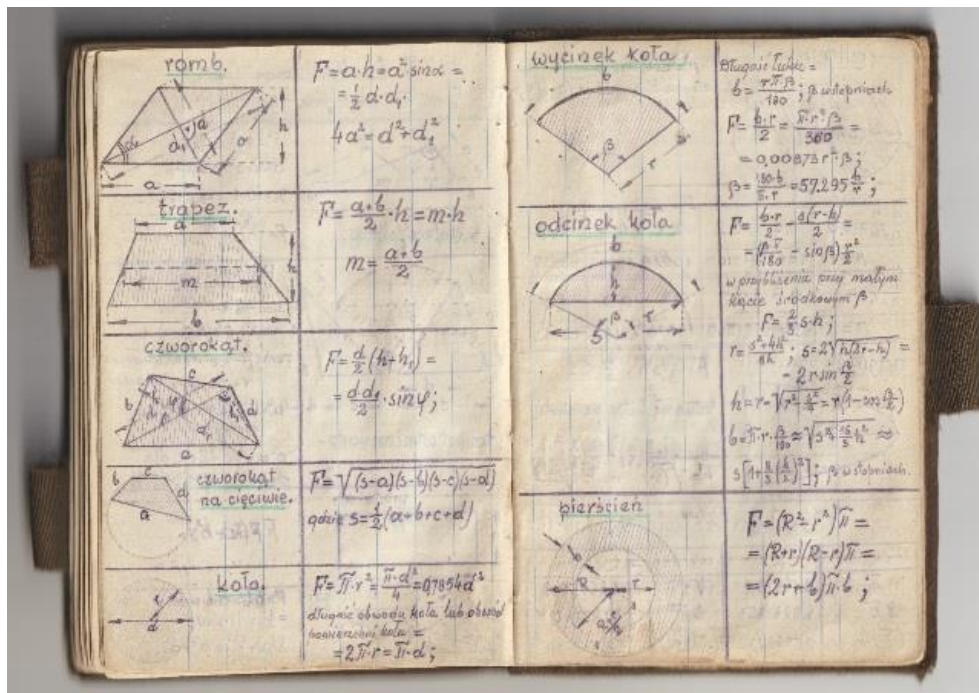 romb.
F=a·h=a² sinα =
=½ d·d₁.
4a²=d²+d₁²
a
d₁
a
h
a
trapez.
a
m
h
b
F=\frac{a+b}{2}·h=m·h
m=\frac{a+b}{2}
czworokąt.
c
b
d
a
F=\frac{d}{2}(h+h₁)=
=\frac{d·d₁}{2}·sinφ;
czworokąt
na cięciwie.
b
c
d
a
F=√(s-a)(s-b)(s-c)(s-d)
gdzie s=½(a+b+c+d)
koło.
r
d
F=π·r²=\frac{π·d²}{4}=0,7854d²
długość obwodu koła lub obwód
koła =
=2π·r=π·d;
wycinek koła
b
β
r
Długość łuku =
b=\frac{rπ·β}{180}; β w stopniach
F=\frac{b·r}{2}=\frac{π·r²·β}{360}=
=0,00873r²·β;
β=\frac{180·b}{π·r}=57,295\frac{b}{r};
odcinek koła
b
h
β
S
r
F=\frac{b·r}{2}-\frac{s(r-h)}{2}=
=(\frac{β·π}{180}-sinβ)\frac{r²}{2}
w przybliżeniu przy małym
kącie środkowym β.
F=\frac{2}{3}s·h;
r=\frac{s²+4h²}{8h}; s=2√h(2r-h) =
=2r sin\frac{β}{2}
h=r-√r²-\frac{s²}{4}=r(1-cos\frac{β}{2})
b=π·r·\frac{β}{180}≈√s²+\frac{16}{3}h² ≈
β w stopniach.
pierścień
b
R
r
F=(R²-r²)π=
=(R+r)(R-r)π=
=(2r+b)π·b;